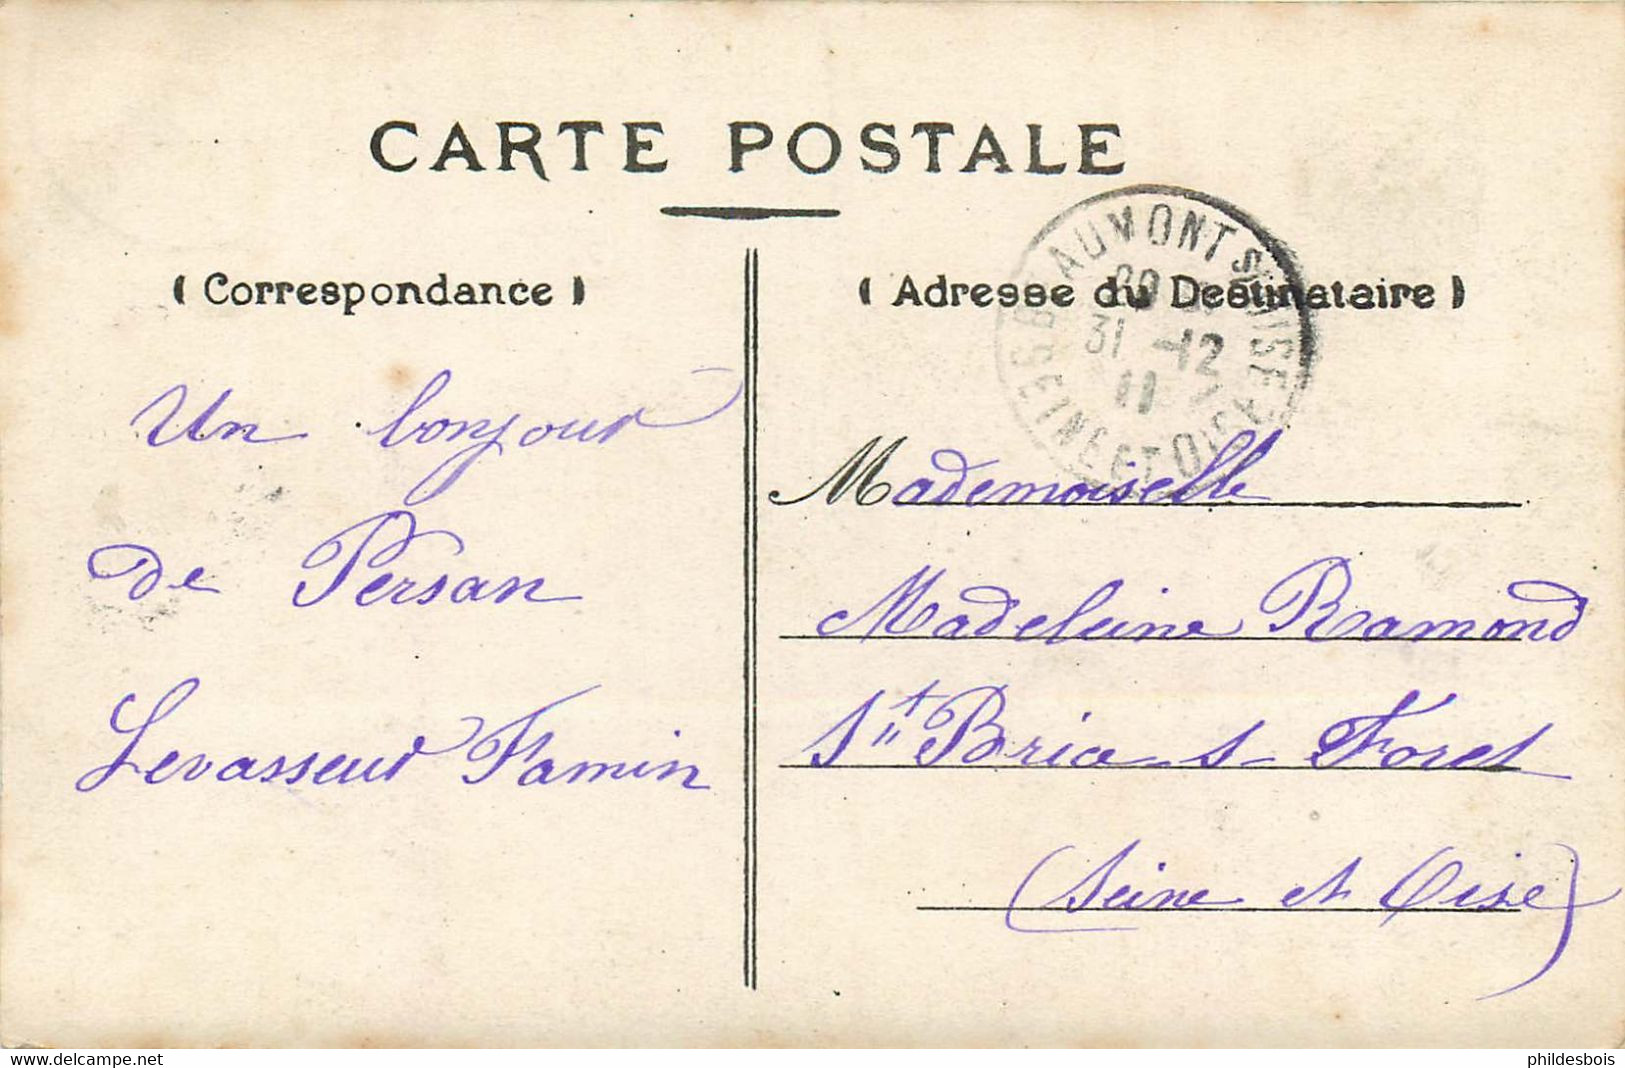 CARTE POSTALE
( Correspondance )
Un bonjour
de Persan
Levasseur Famin
( Adresse du Destinataire )
BEAUMONT S OISE
31 -12
11
SEINE ET OISE
Mademoiselle
Madeleine Ramond
St Brice s Foret
(Seine et Oise)
www.delcampe.net
phildesbois